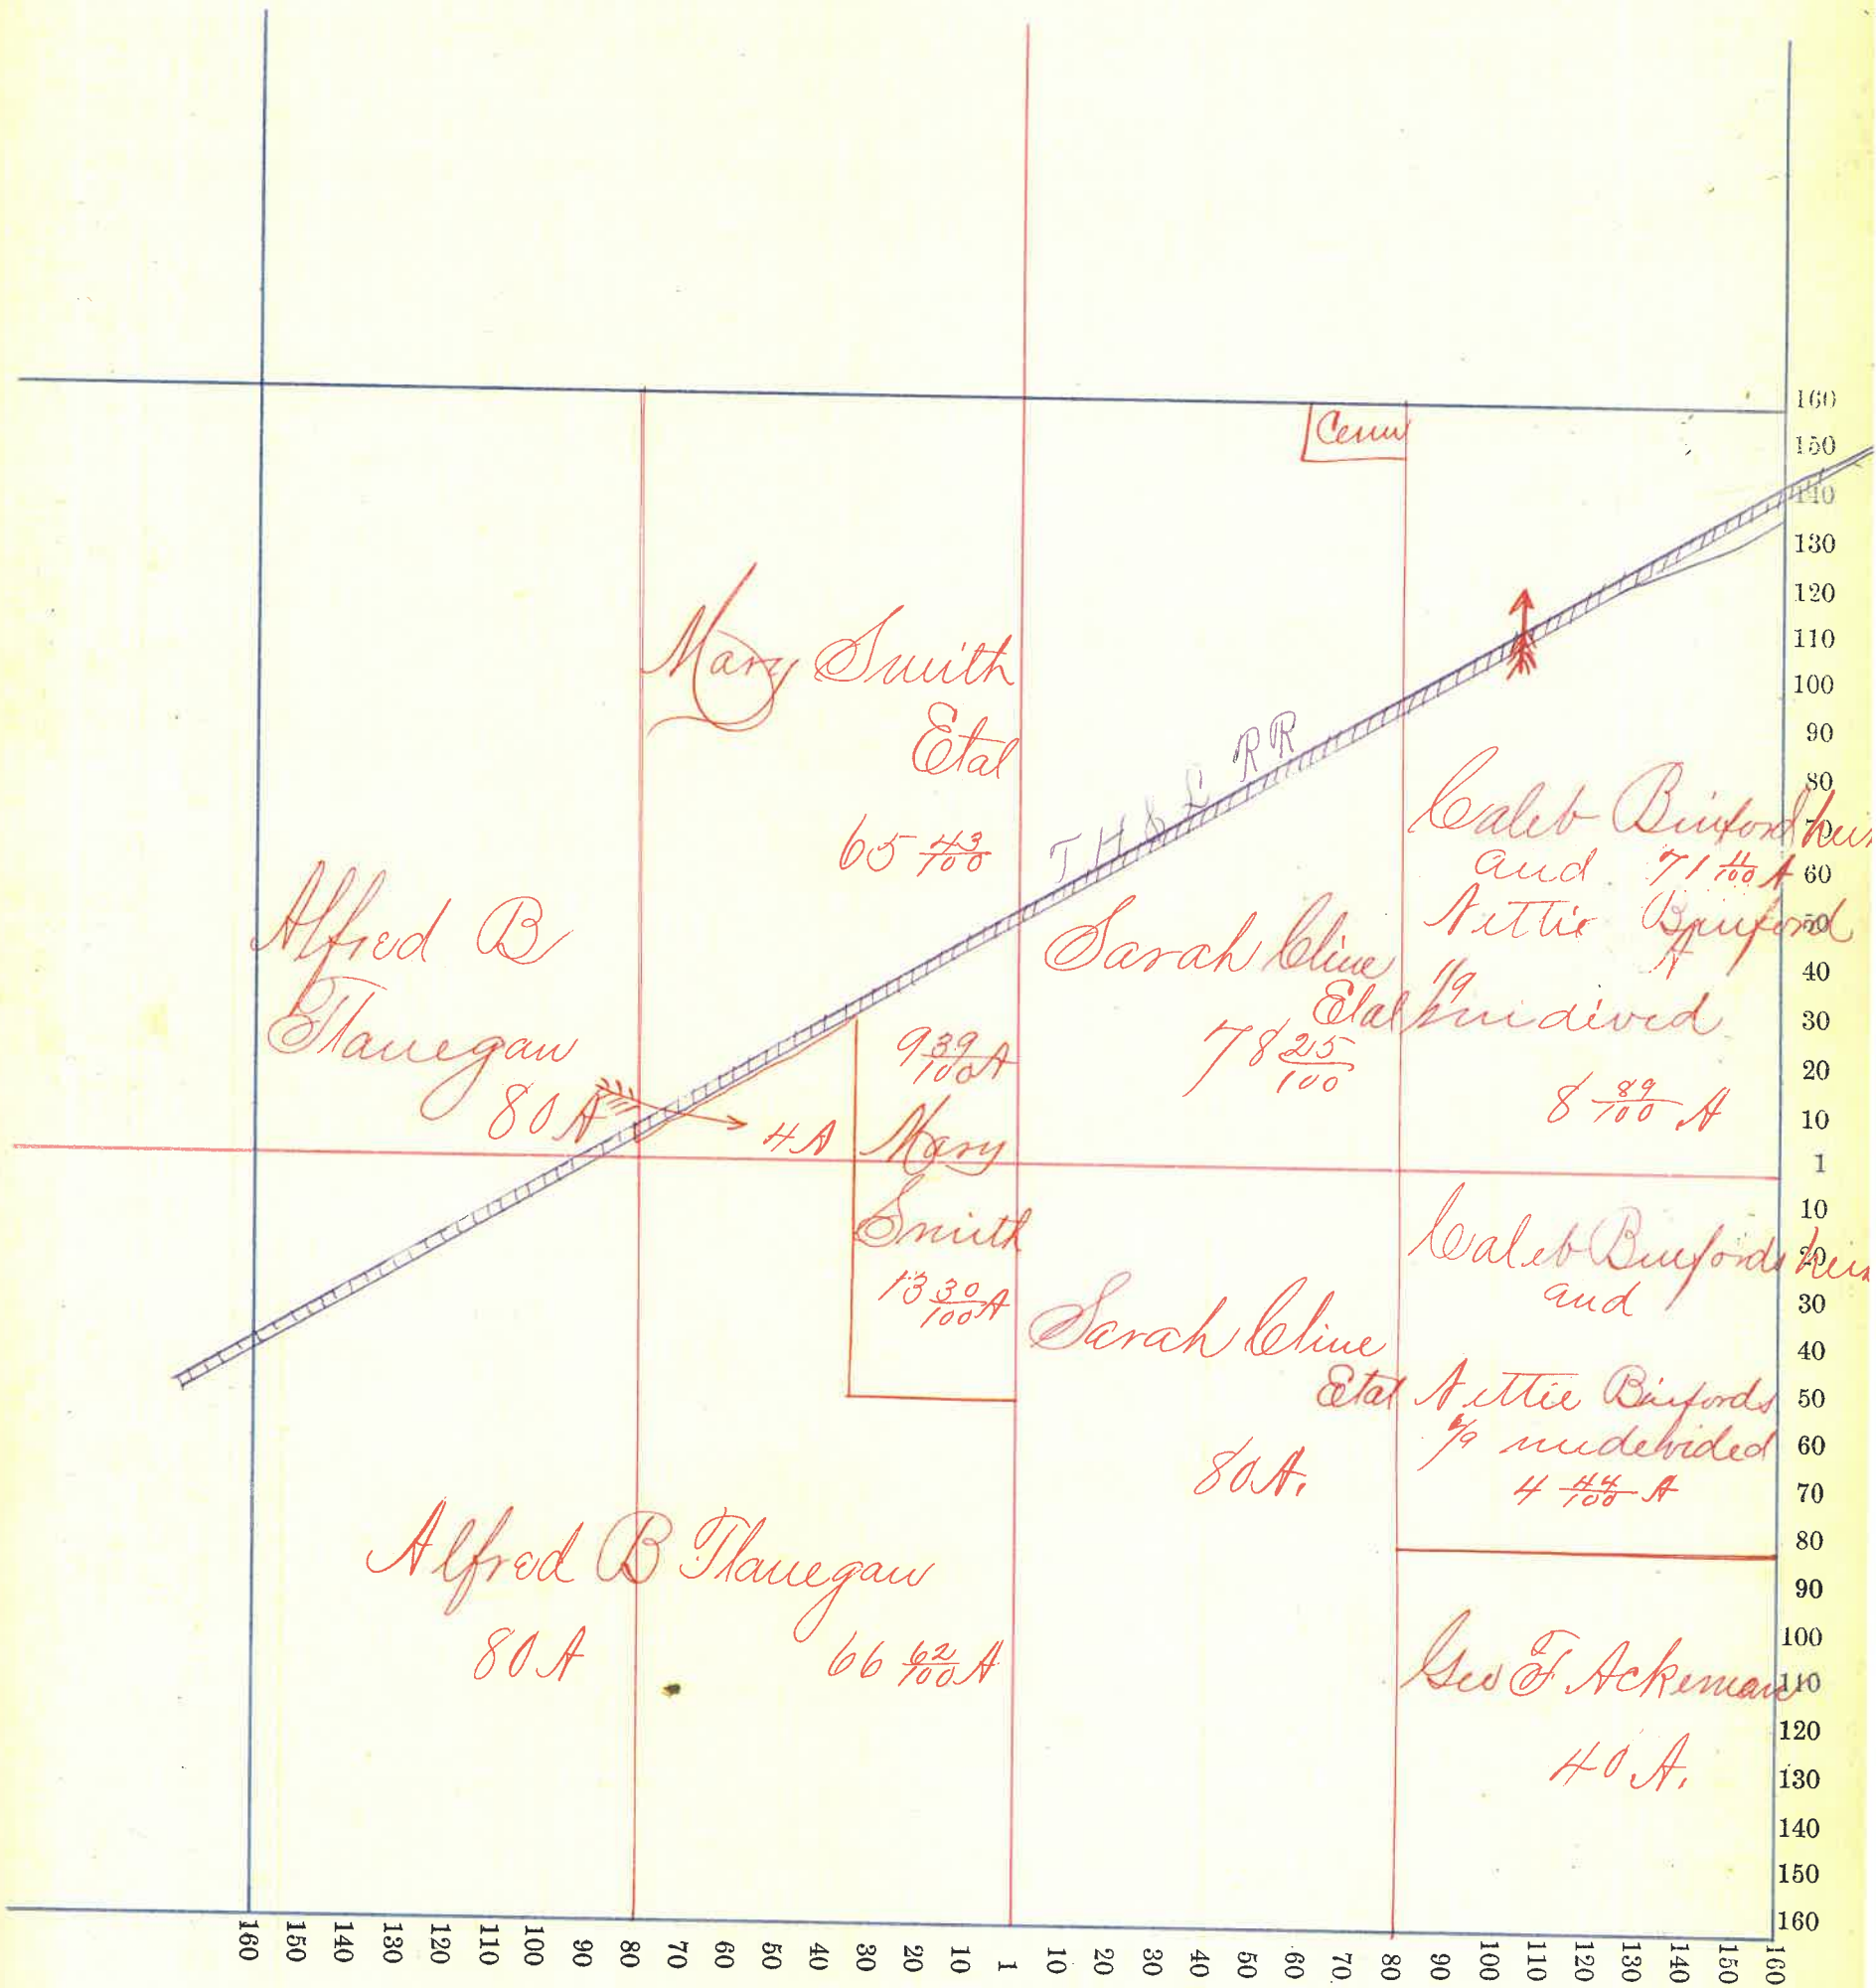 Cem
Mary Smith
Etal
65 43/100
T H & L R R
Alfred B
Flanegan
80 A
4 A
9 39/100 A
Mary
Smith
13 30/100 A
Sarah Cline
Etal
78 25/100
Caleb Binford heirs
and 71 11/100 A
Nettie Binford
1/9 undivied
8 89/100 A
Caleb Binfords heirs
and
Nettie Binfords
1/9 undevided
4 44/100 A
Sarah Cline
Etal
80 A.
Alfred B Flanegan
80 A 66 62/100 A
Geo F Ackeman
40 A.
160
150
140
130
120
110
100
90
80
70
60
50
40
30
20
10
1
10
20
30
40
50
60
70
80
90
100
110
120
130
140
150
160
160 150 140 130 120 110 100 90 80 70 60 50 40 30 20 10 1 10 20 30 40 50 60 70 80 90 100 110 120 130 140 150 160